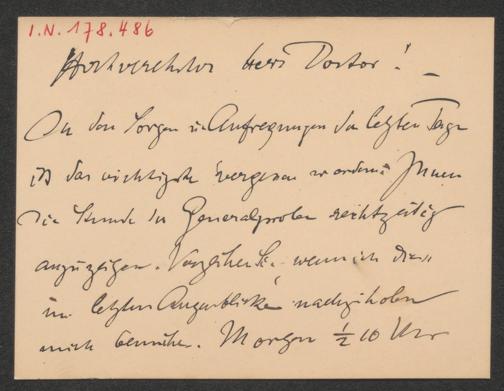 I.N. 178.486
Hochverehrter Herr Doctor! –
In den Sorgen u Aufregungen der letzten Tage
ist das wichtigste vergessen worden: Ihnen
die Stunde der Generalprobe rechtzeitig
anzuzeigen. Verzeihen Sie, wenn ich dies
im letzten Augenblicke nachzuholen
mich bemühe. Morgen ½ 10 Uhr